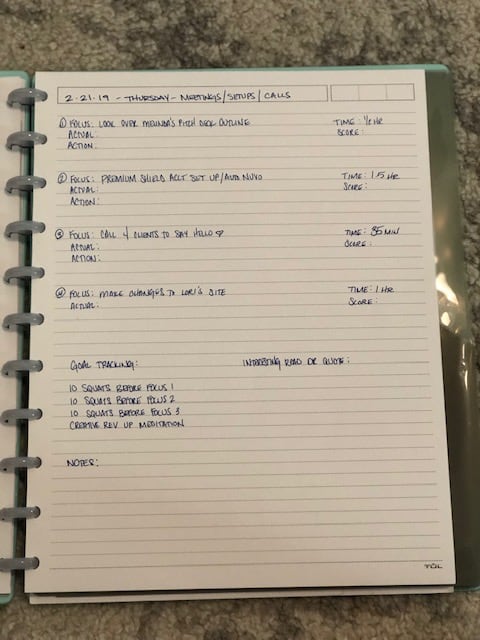 2.21.19 - THURSDAY - MEETINGS/SETUPS/CALLS
① FOCUS: LOOK OVER MELINDA'S PITCH DECK OUTLINE TIME: 1/2 HR
ACTUAL: SCORE:
ACTION:
② FOCUS: PREMIUM SHIELD ACCT SET UP/AUTO NUVO TIME: 1.5 HR
ACTUAL: SCORE:
ACTION:
③ FOCUS: CALL 4 CLIENTS TO SAY HELLO ♡ TIME: 35 MIN
ACTUAL: SCORE:
ACTION:
④ FOCUS: MAKE CHANGES TO LORI'S SITE TIME: 1 HR
ACTUAL: SCORE:
GOAL TRACKING: INTERESTING READ OR QUOTE:
10 SQUATS BEFORE FOCUS 1
10 SQUATS BEFORE FOCUS 2
10 SQUATS BEFORE FOCUS 3
CREATIVE REV UP MEDITATION
NOTES: